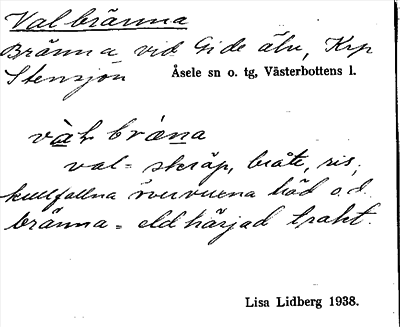 Valbränna
Bränna vid Gide älv, Krp
Stensjön Åsele sn o. tg, Västerbottens l.
val- skräp, bråte, ris,
kullfallna övervuxna träd o.d.
bränna = eldhärjad trakt.
Lisa Lidberg 1938.